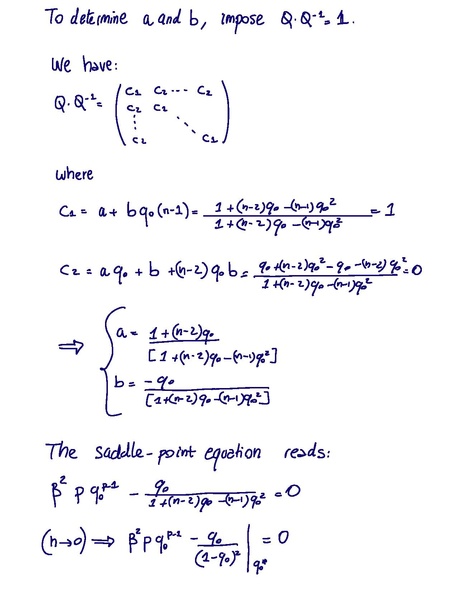 To determine a and b, impose Q·Q⁻¹=1.
We have:
Q·Q⁻¹= ( c₁ c₂ ··· c₂
c₂ c₂
⋮ ⋱
c₂ c₁ )
where
c₁ = a + b q₀ (n-1) = (1+(n-2)q₀ -(n-1)q₀²) / (1+(n-2)q₀ -(n-1)q₀²) = 1
c₂ = a q₀ + b +(n-2) q₀ b = (q₀ +(n-2)q₀² - q₀ -(n-2) q₀²) / (1+(n-2)q₀ -(n-1)q₀²) = 0
⇒ { a = (1+(n-2)q₀) / [1+(n-2)q₀ -(n-1)q₀²]
b = -q₀ / [1+(n-2)q₀ -(n-1)q₀²]
The saddle-point equation reads:
β² p q₀ᵖ⁻¹ - q₀ / (1+(n-2)q₀ -(n-1)q₀²) = 0
(n→0) ⇒ β² p q₀ᵖ⁻¹ - q₀ / (1-q₀)² |q₀* = 0